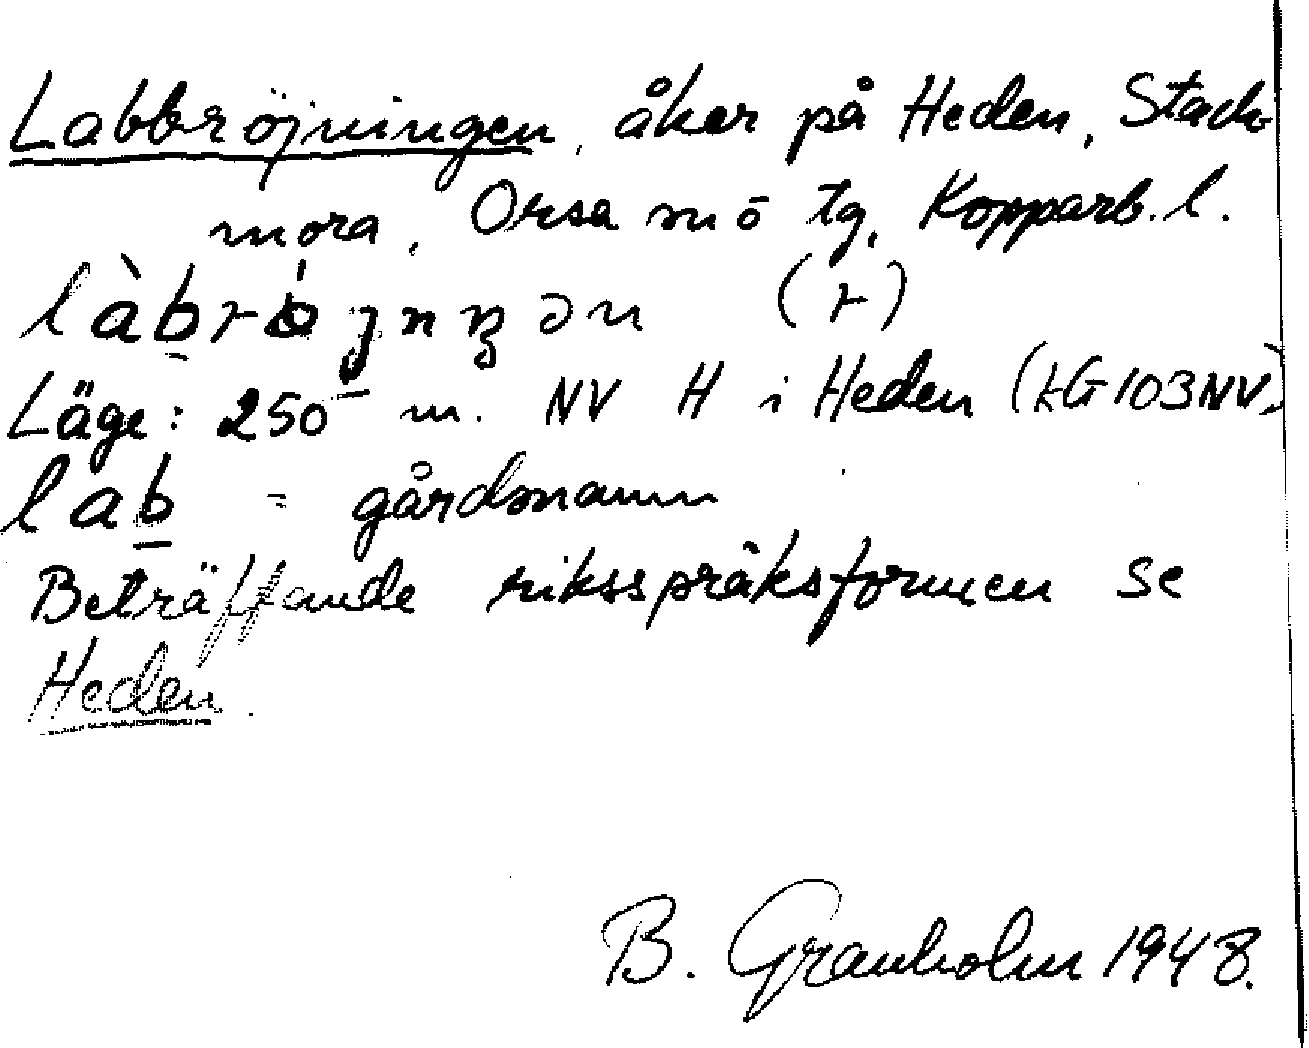 Labbröjningen, åker på Heden, Stack-
mora, Orsa sn ö tg, Kopparb. l.
Läge: 250 m. NV H i Heden (LG 103 NV)
lab = gårdsnamn
Beträffande riksspråksformen se
Heden.
B. Granholm 1948.